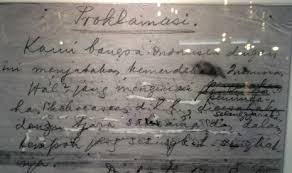 Proklamasi.
Kami bangsa Indonesia dengan
ini menjatakan kemerdekaan Indonesia.
Hal² jang mengenai
kekoeasaan d.l.l.,
dengan tjara saksama dan dalam
tempoh jang sesingkat-singkat
nja.